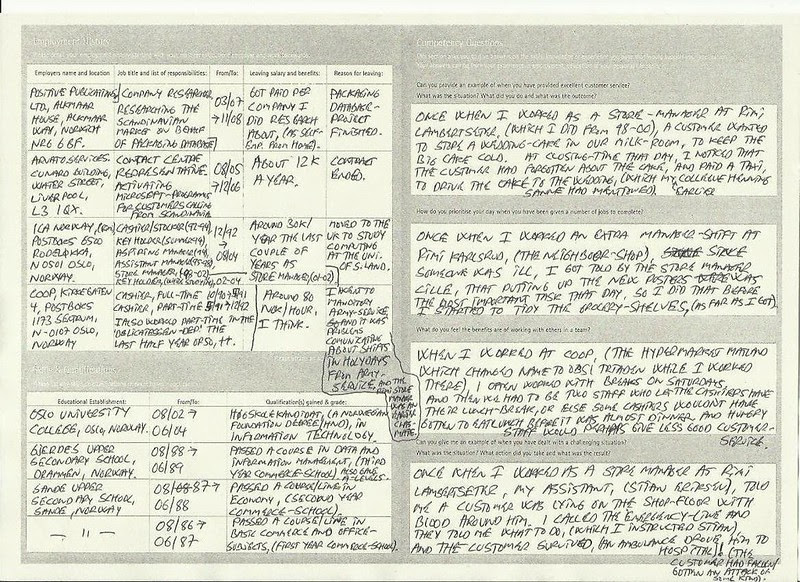 Employment History
Employers name and location
Job title and list of responsibilities:
From/To:
Leaving salary and benefits:
Reason for leaving:
POSITIVE PUBLICATING
LTD, ALKMAAR
HOUSE, ALKMAAR
WAY, NORWICH
NR6 6BF.
COMPANY RESEARCHER
RESEARCHING THE
SCANDINAVIAN
MARKET ON BEHALF
OF PACKAGING DATABASE)
03/07
→11/08
GOT PAID PER
COMPANY I
DID RESEARCH
ABOUT, (AS SELF-
EMP. FROM HOME).
PACKAGING
DATABASE-
PROJECT
FINISHED.
ARVATO SERVICES.
CUNARD BUILDING,
WATER STREET,
LIVERPOOL,
L3 1QX.
CONTACT CENTRE
REPRESENTATIVE.
ACTIVATING
MICROSOFT-PROGRAMS
FOR CUSTOMERS CALLING
FROM SCANDINAVIA
08/05
→
7/2/06
ABOUT 12 K
A YEAR.
CONTRACT
ENDED.
ICA NORWAY, (RIMI)
POSTBOKS 6500
RODELØKKA,
N 0501 OSLO,
NORWAY.
CASHIER/STOCKER(92-94),
KEY HOLDER(SUMMER 94),
ASPIRING MANAGER(94)
ASSISTANT MANAGER(94-98)
STORE MANAGER, (98-02)
KEY HOLDER, 02-04
12/92
→
08/04
AROUND 30K/
YEAR THE LAST
COUPLE OF
YEARS AS
STORE MANAGER, (01-02)
MOVED TO THE
UK TO STUDY
COMPUTING
AT THE UNI.
OF S.LAND.
COOP, KIRKEGATEN
4, POSTBOKS
1173 SENTRUM,
N-0107 OSLO,
NORWAY
CASHIER, FULL-TIME
CASHIER, PART-TIME
I ALSO WORKED PART-TIME IN THE
'DELICATESSEN-DEP.' THE
LAST HALF YEAR OR SO, ++.
AROUND 80
NOK/HOUR,
I THINK.
I WENT TO
MANDITORY
ARMY-SERVICE,
AND IT WAS
PROBLEMS
COMUNICATING
ABOUT SHIFTS
IN HOLYDAYS
FROM ARMY-
SERVICE, AND THE
RIMI STORE
MANAGER
WAS AN
EARLIER
CLASS-
MATE.
Educational Establishment:
From/To:
Qualification(s) gained & grade:
OSLO UNIVERSITY
COLLEGE, OSLO, NORWAY.
08/02 →
06/04
HØGSKOLEKANDIDAT, (A NORWEGIAN
FOUNDATION DEGREE/HND), IN
INFORMATION TECHNOLOGY.
GJERDES UPPER
SECONDARY SCHOOL,
DRAMMEN, NORWAY.
08/88 →
06/89
PASSED A COURSE IN DATA AND
INFORMATION MANAGEMENT, (THIRD
YEAR COMMERCE-SCHOOL). ALSO GAVE
A-LEVELS.
SANDE UPPER
SECONDARY SCHOOL,
SANDE, NORWAY
08/87→
06/88
PASSED A COURSE/LINE IN
ECONOMY, (SECOND YEAR
COMMERCE-SCHOOL).
— 11 —
08/86 →
06/87
PASSED A COURSE/LINE IN
BASIC COMMERCE AND OFFICE-
SUBJECTS, (FIRST YEAR COMMERCE-SCHOOL).
Competency Questions
Can you provide an example of when you have provided excellent customer service?
What was the situation? What did you do and what was the outcome?
ONCE WHEN I WORKED AS A STORE-MANAGER AT RIMI
LAMBERTSETER, (WHICH I DID FROM 98-00), A CUSTOMER WANTED
TO STORE A WEDDING-CAKE IN OUR MILK-ROOM, TO KEEP THE
BIG CAKE COLD. AT CLOSING-TIME THAT DAY, I NOTICED THAT
THE CUSTOMER HAD FORGOTTEN ABOUT THE CAKE, AND PAID A TAXI,
TO DRIVE THE CAKE TO THE WEDDING, (WHICH MY COLLEGUE HENNING
SANNE HAD MENTIONED). EARLIER
How do you prioritise your day when you have been given a number of jobs to complete?
ONCE WHEN I WORKED AN EXTRA MANAGER-SHIFT AT
RIMI KARLSRUD, (THE NEIGHBOUR-SHOP), SINCE
SOMEONE WAS ILL, I GOT TOLD BY THE STORE MANAGER
LILLE, THAT PUTTING UP THE NEW POSTERS WAS
THE MOST IMPORTANT TASK THAT DAY, SO I DID THAT BEFORE
I STARTED TO TIDY THE GROCERY-SHELVES, (AS FAR AS I GOT).
What do you feel the benefits are of working with others in a team?
WHEN I WORKED AT COOP, (THE HYPERMARKET MATLAND
WHICH CHANGED NAME TO OBS! TRIADEN WHILE I WORKED
THERE), I OFTEN WORKED WITH BREAKS ON SATURDAYS,
AND THEN WE HAD TO BE TWO STAFF WHO LET THE CASHIERS HAVE
THEIR LUNCH-BREAK, OR ELSE SOME CASHIERS WOULDN'T HAVE
GOTTEN TO EAT LUNCH BEFORE IT WAS ALMOST DINNER, AND HUNGRY
STAFF WOULD PERHAPS GIVE LESS GOOD CUSTOMER-
SERVICE.
Can you give me an example of when you have dealt with a challenging situation?
What was the situation? What action did you take and what was the result?
ONCE WHEN I WORKED AS A STORE MANAGER AT RIMI
LAMBERTSETER, MY ASSISTANT, (STIAN ERIKSEN), TOLD
ME A CUSTOMER WAS LYING ON THE SHOP-FLOOR WITH
BLOOD AROUND HIM. I CALLED THE EMERGENCY-LINE AND
THEY TOLD ME WHAT TO DO, (WHICH I INSTRUCTED STIAN),
AND THE CUSTOMER SURVIVED, (AN AMBULANCE DROVE HIM TO
HOSPITAL)! (THE
CUSTOMER HAD FALLEN/
GOTTEN AN ATTACK OF
SOME KIND).